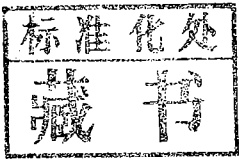 标准化处
藏书